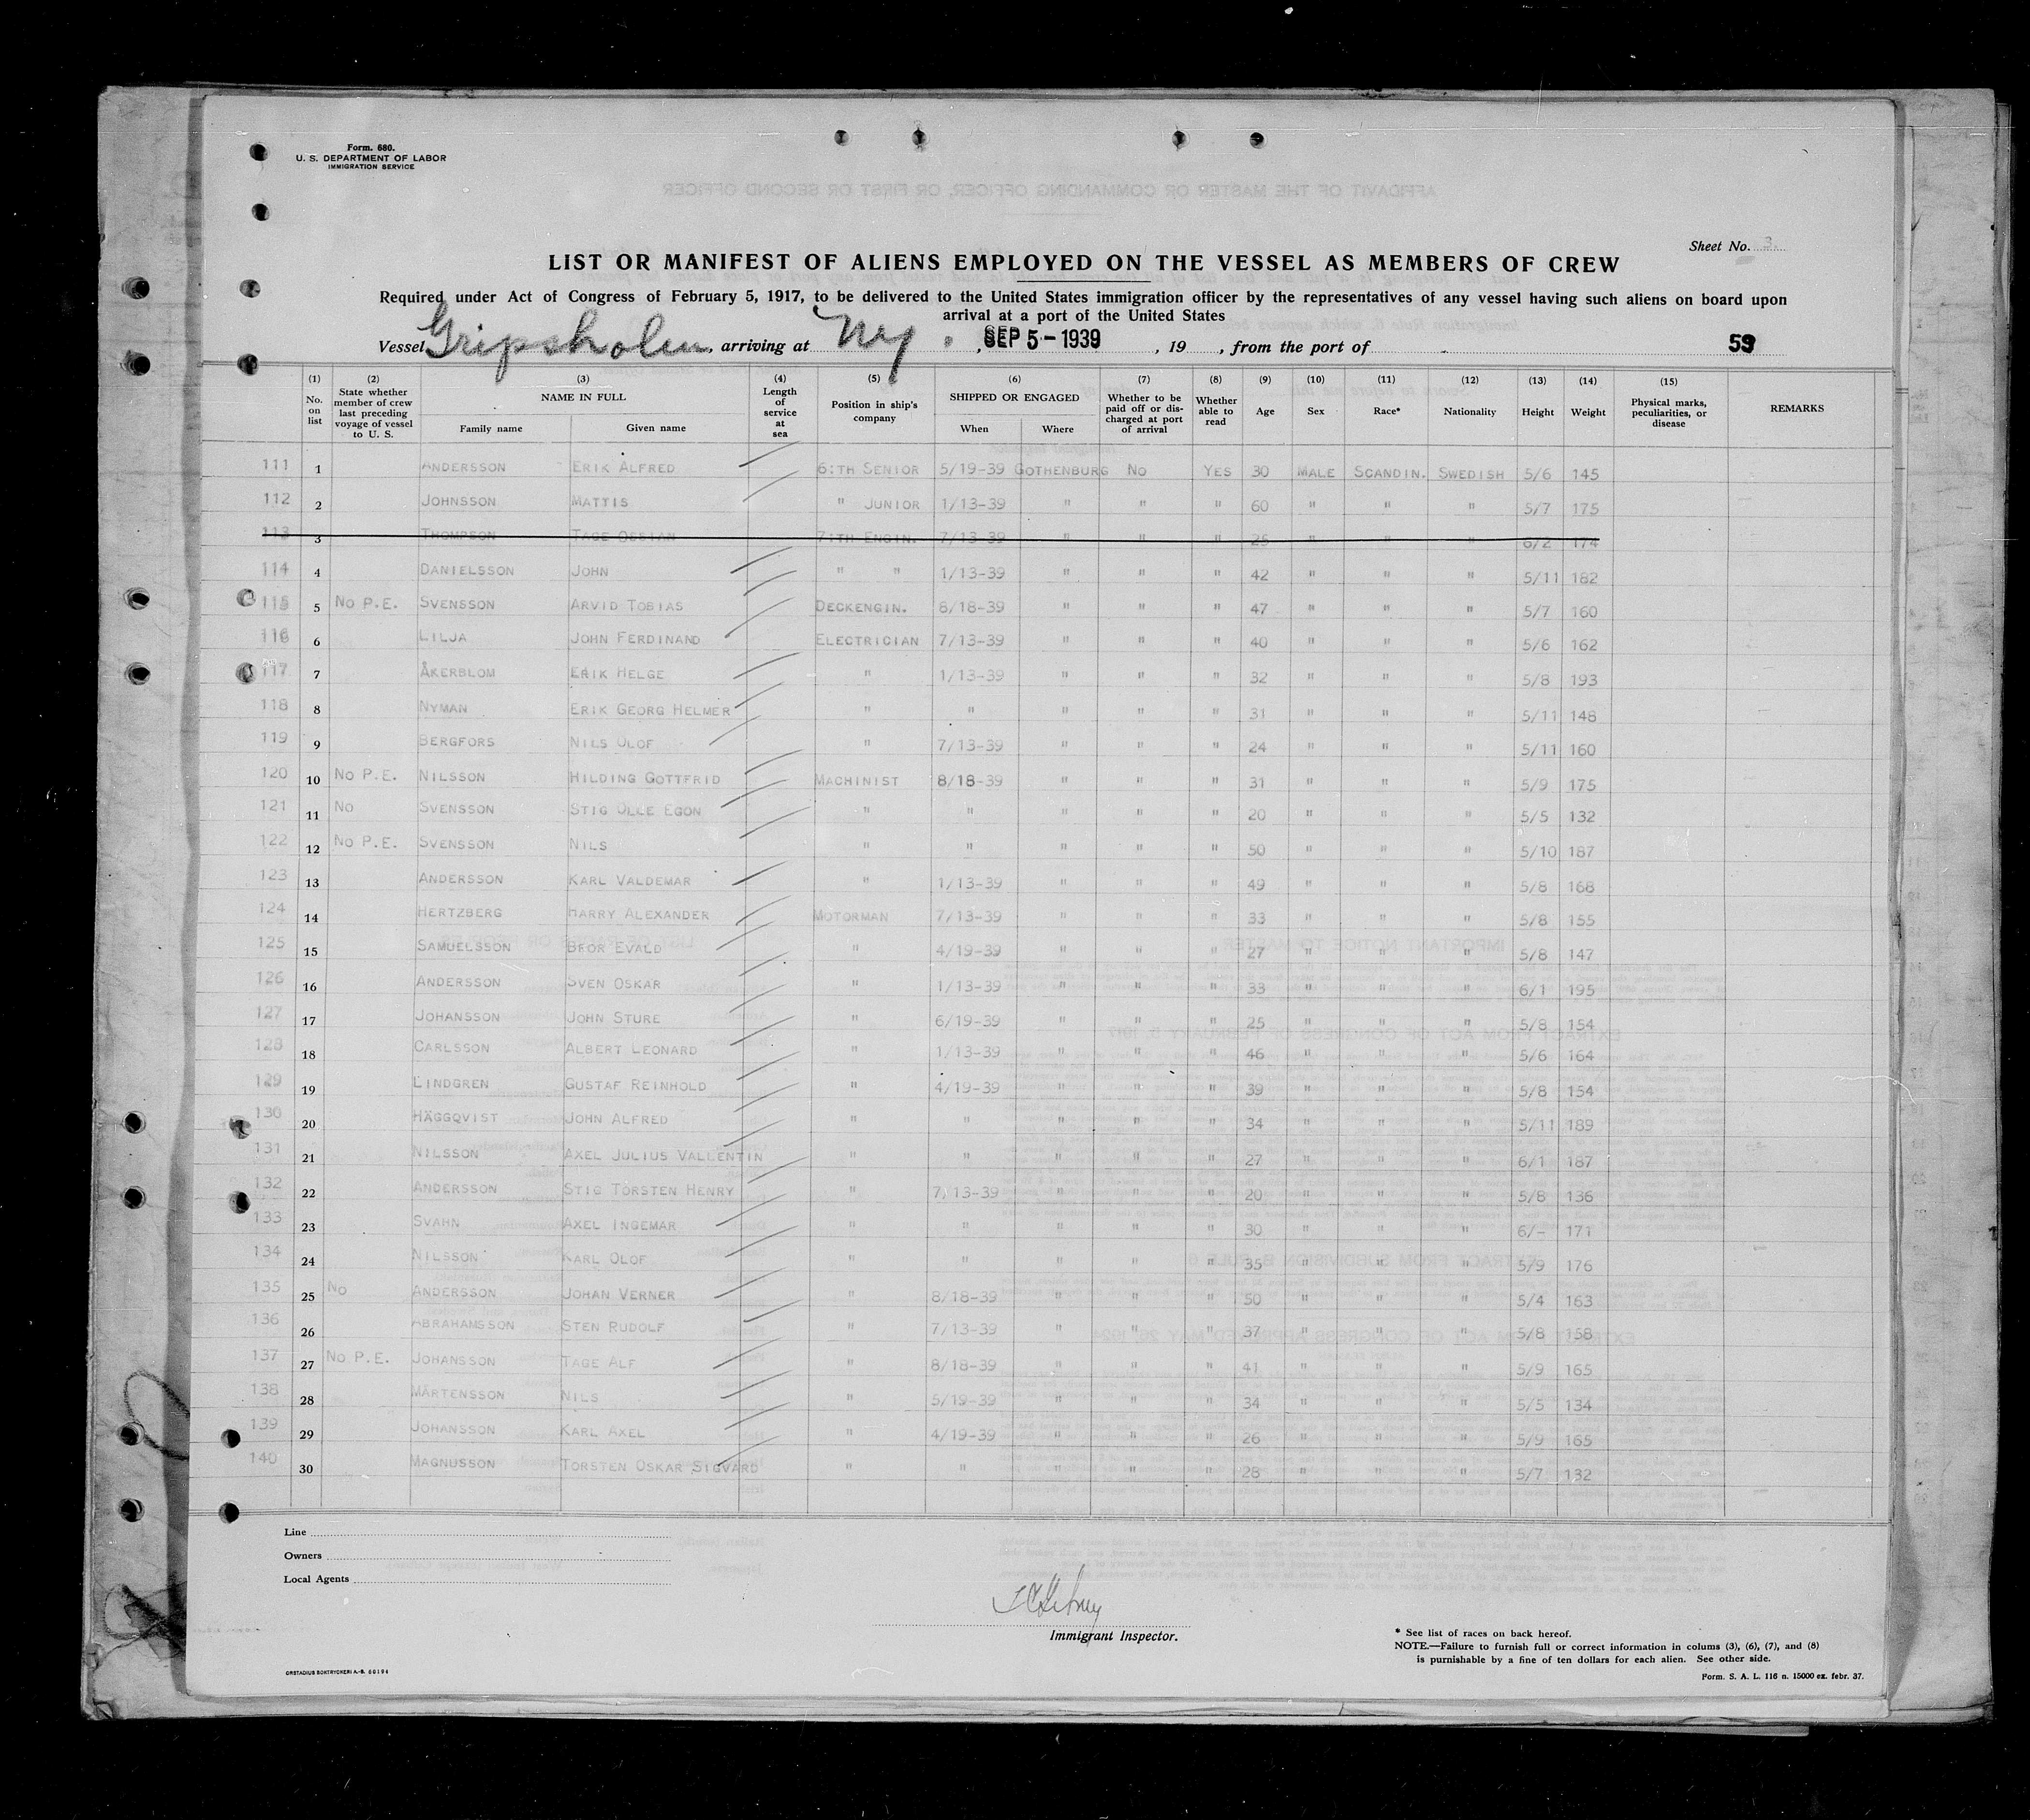 Form. 680.
U. S. DEPARTMENT OF LABOR
IMMIGRATION SERVICE
Sheet No. 3.
LIST OR MANIFEST OF ALIENS EMPLOYED ON THE VESSEL AS MEMBERS OF CREW
Required under Act of Congress of February 5, 1917, to be delivered to the United States immigration officer by the representatives of any vessel having such aliens on board upon
arrival at a port of the United States
Vessel Gripsholm, arriving at Ny. , SEP 5 - 1939 , 19 , from the port of 59
(1) No. on list (2) State whether member of crew last preceding voyage of vessel to U. S. (3) NAME IN FULL Family name Given name (4) Length of service at sea (5) Position in ship's company (6) SHIPPED OR ENGAGED When Where (7) Whether to be paid off or discharged at port of arrival (8) Whether able to read (9) Age (10) Sex (11) Race* (12) Nationality (13) Height (14) Weight (15) Physical marks, peculiarities, or disease REMARKS
111 1 ANDERSSON ERIK ALFRED 6:TH SENIOR 5/19-39 GOTHENBURG NO YES 30 MALE SCANDIN. SWEDISH 5/6 145
112 2 JOHNSSON MATTIS " JUNIOR 1/13-39 " " " 60 " " " 5/7 175
113 3 THOMPSON TAGE OSSIAN 7:TH ENGIN. 7/13-39 " " " 25 " " " 6/2 174
114 4 DANIELSSON JOHN " " 1/13-39 " " " 42 " " " 5/11 182
115 5 NO P.E. SVENSSON ARVID TOBIAS DECKENGIN. 8/18-39 " " " 47 " " " 5/7 160
116 6 LILJA JOHN FERDINAND ELECTRICIAN 7/13-39 " " " 40 " " " 5/6 162
117 7 ÅKERBLOM ERIK HELGE " 1/13-39 " " " 32 " " " 5/8 193
118 8 NYMAN ERIK GEORG HELMER " " " " " 31 " " " 5/11 148
119 9 BERGFORS NILS OLOF " 7/13-39 " " " 24 " " " 5/11 160
120 10 NO P.E. NILSSON HILDING GOTTFRID MACHINIST 8/18-39 " " " 31 " " " 5/9 175
121 11 NO SVENSSON STIG OLLE EGON " " " " " 20 " " " 5/5 132
122 12 NO P.E. SVENSSON NILS " " " " " 50 " " " 5/10 187
123 13 ANDERSSON KARL VALDEMAR " 1/13-39 " " " 49 " " " 5/8 168
124 14 HERTZBERG HARRY ALEXANDER MOTORMAN 7/13-39 " " " 33 " " " 5/8 155
125 15 SAMUELSSON BROR EVALD " 4/19-39 " " " 27 " " " 5/8 147
126 16 ANDERSSON SVEN OSKAR " 1/13-39 " " " 33 " " " 6/1 195
127 17 JOHANSSON JOHN STURE " 6/19-39 " " " 25 " " " 5/8 154
128 18 CARLSSON ALBERT LEONARD " 1/13-39 " " " 46 " " " 5/6 164
129 19 LINDGREN GUSTAF REINHOLD " 4/19-39 " " " 39 " " " 5/8 154
130 20 HÄGGQVIST JOHN ALFRED " " " " " 34 " " " 5/11 189
131 21 NILSSON AXEL JULIUS VALLENTIN " " " " " 27 " " " 6/1 187
132 22 ANDERSSON STIG TORSTEN HENRY " 7/13-39 " " " 20 " " " 5/8 136
133 23 SVAHN AXEL INGEMAR " " " " " 30 " " " 6/- 171
134 24 NILSSON KARL OLOF " " " " " 35 " " " 5/9 176
135 25 NO ANDERSSON JOHAN VERNER " 8/18-39 " " " 50 " " " 5/4 163
136 26 ABRAHAMSSON STEN RUDOLF " 7/13-39 " " " 37 " " " 5/8 158
137 27 NO P.E. JOHANSSON TAGE ALF " 8/18-39 " " " 41 " " " 5/9 165
138 28 MÅRTENSSON NILS " 5/19-39 " " " 34 " " " 5/5 134
139 29 JOHANSSON KARL AXEL " 4/19-39 " " " 26 " " " 5/9 165
140 30 MAGNUSSON TORSTEN OSKAR SIGVARD " " " " " 28 " " " 5/7 132
Line
Owners
Local Agents
Immigrant Inspector.
* See list of races on back hereof.
NOTE.—Failure to furnish full or correct information in colums (3), (6), (7), and (8)
is punishable by a fine of ten dollars for each alien. See other side.
ORSTADIUS BOKTRYCKERI A.-B. 60194
Form. S. A. L. 116 n. 15000 ex. febr. 37.